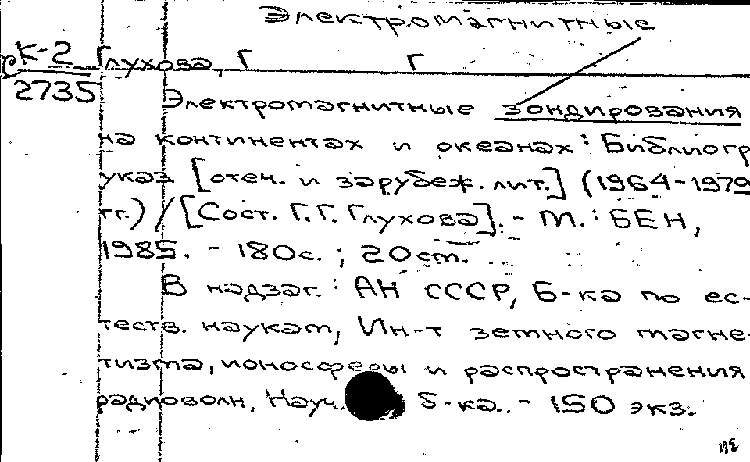 Электромагнитные
К-2 Глухова, Г Г
2735
Электромагнитные зондирования
на континентах и океанах : Библиогр
указ [отеч. и зарубеж. лит.] (1964-1979
гг.) / [Сост. Г.Г. Глухова]. - М. : БЕН,
1985. - 180с. ; 20 см.
В надзаг. : АН СССР, Б-ка по ес-
теств. наукам, Ин-т земного магне-
тизма, ионосферы и распространения
радиоволн, Науч. б-ка. - 150 экз.